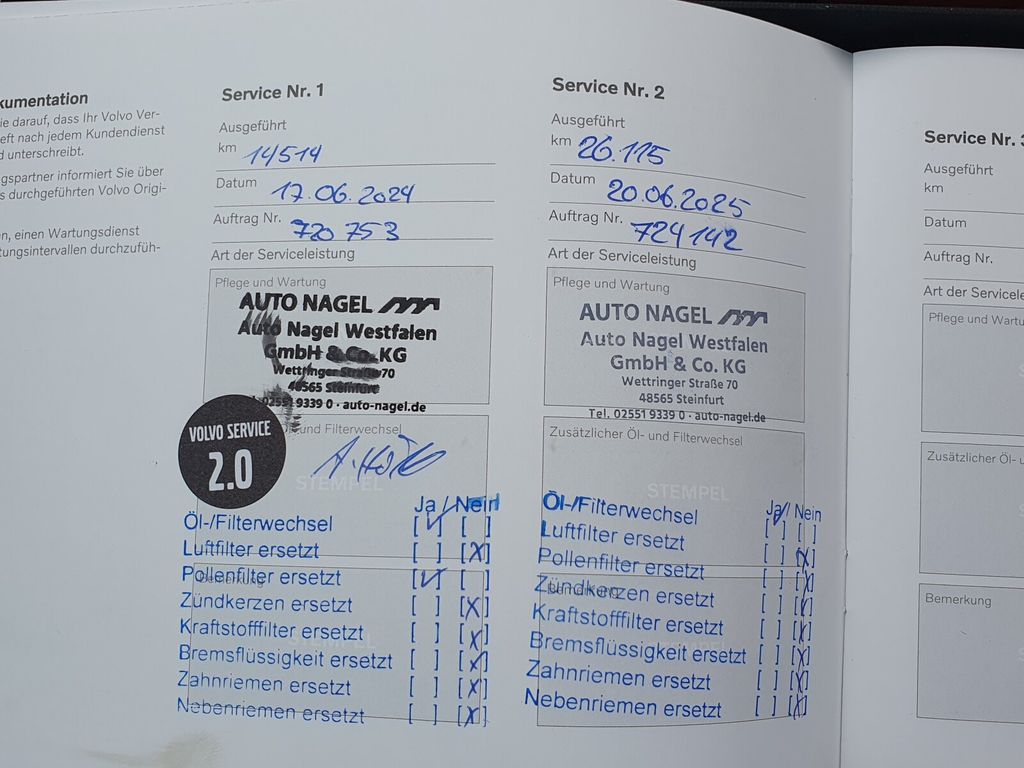 kumentation
ie darauf, dass Ihr Volvo Ver-
eft nach jedem Kundendienst
d unterschreibt.
ngspartner informiert Sie über
s durchgeführten Volvo Origi-
n, einen Wartungsdienst
tungsintervallen durchzufüh-
Service Nr. 1
Ausgeführt
km 14514
Datum 17.06.2024
Auftrag Nr. 720 753
Art der Serviceleistung
Pflege und Wartung
AUTO NAGEL
Auto Nagel Westfalen
GmbH & Co. KG
Wettringer Straße 70
48565 Steinfurt
02551 9339 0 · auto-nagel.de
VOLVO SERVICE
2.0
und Filterwechsel
STEMPEL
Ja / Nein
Öl-/Filterwechsel [✓] [ ]
Luftfilter ersetzt [ ] [X]
Pollenfilter ersetzt [✓] [ ]
Bemerkung
Zündkerzen ersetzt [ ] [X]
Kraftstofffilter ersetzt [ ] [X]
STEMPEL
Bremsflüssigkeit ersetzt [ ] [X]
Zahnriemen ersetzt [ ] [X]
Nebenriemen ersetzt [ ] [X]
Service Nr. 2
Ausgeführt
km 26.115
Datum 20.06.2025
Auftrag Nr. 724142
Art der Serviceleistung
Pflege und Wartung
AUTO NAGEL
Auto Nagel Westfalen
GmbH & Co. KG
Wettringer Straße 70
48565 Steinfurt
Tel. 02551 9339 0 · auto-nagel.de
Zusätzlicher Öl- und Filterwechsel
STEMPEL
Ja / Nein
Öl-/Filterwechsel [✓] [ ]
Luftfilter ersetzt [ ] [X]
Pollenfilter ersetzt [ ] [X]
Zündkerzen ersetzt [ ] [X]
Bemerkung
Kraftstofffilter ersetzt [ ] [X]
Bremsflüssigkeit ersetzt [ ] [X]
Zahnriemen ersetzt [ ] [X]
Nebenriemen ersetzt [ ] [X]
Service Nr. 3
Ausgeführt
km
Datum
Auftrag Nr.
Art der Servicele
Pflege und Wartu
Zusätzlicher Öl- u
Bemerkung